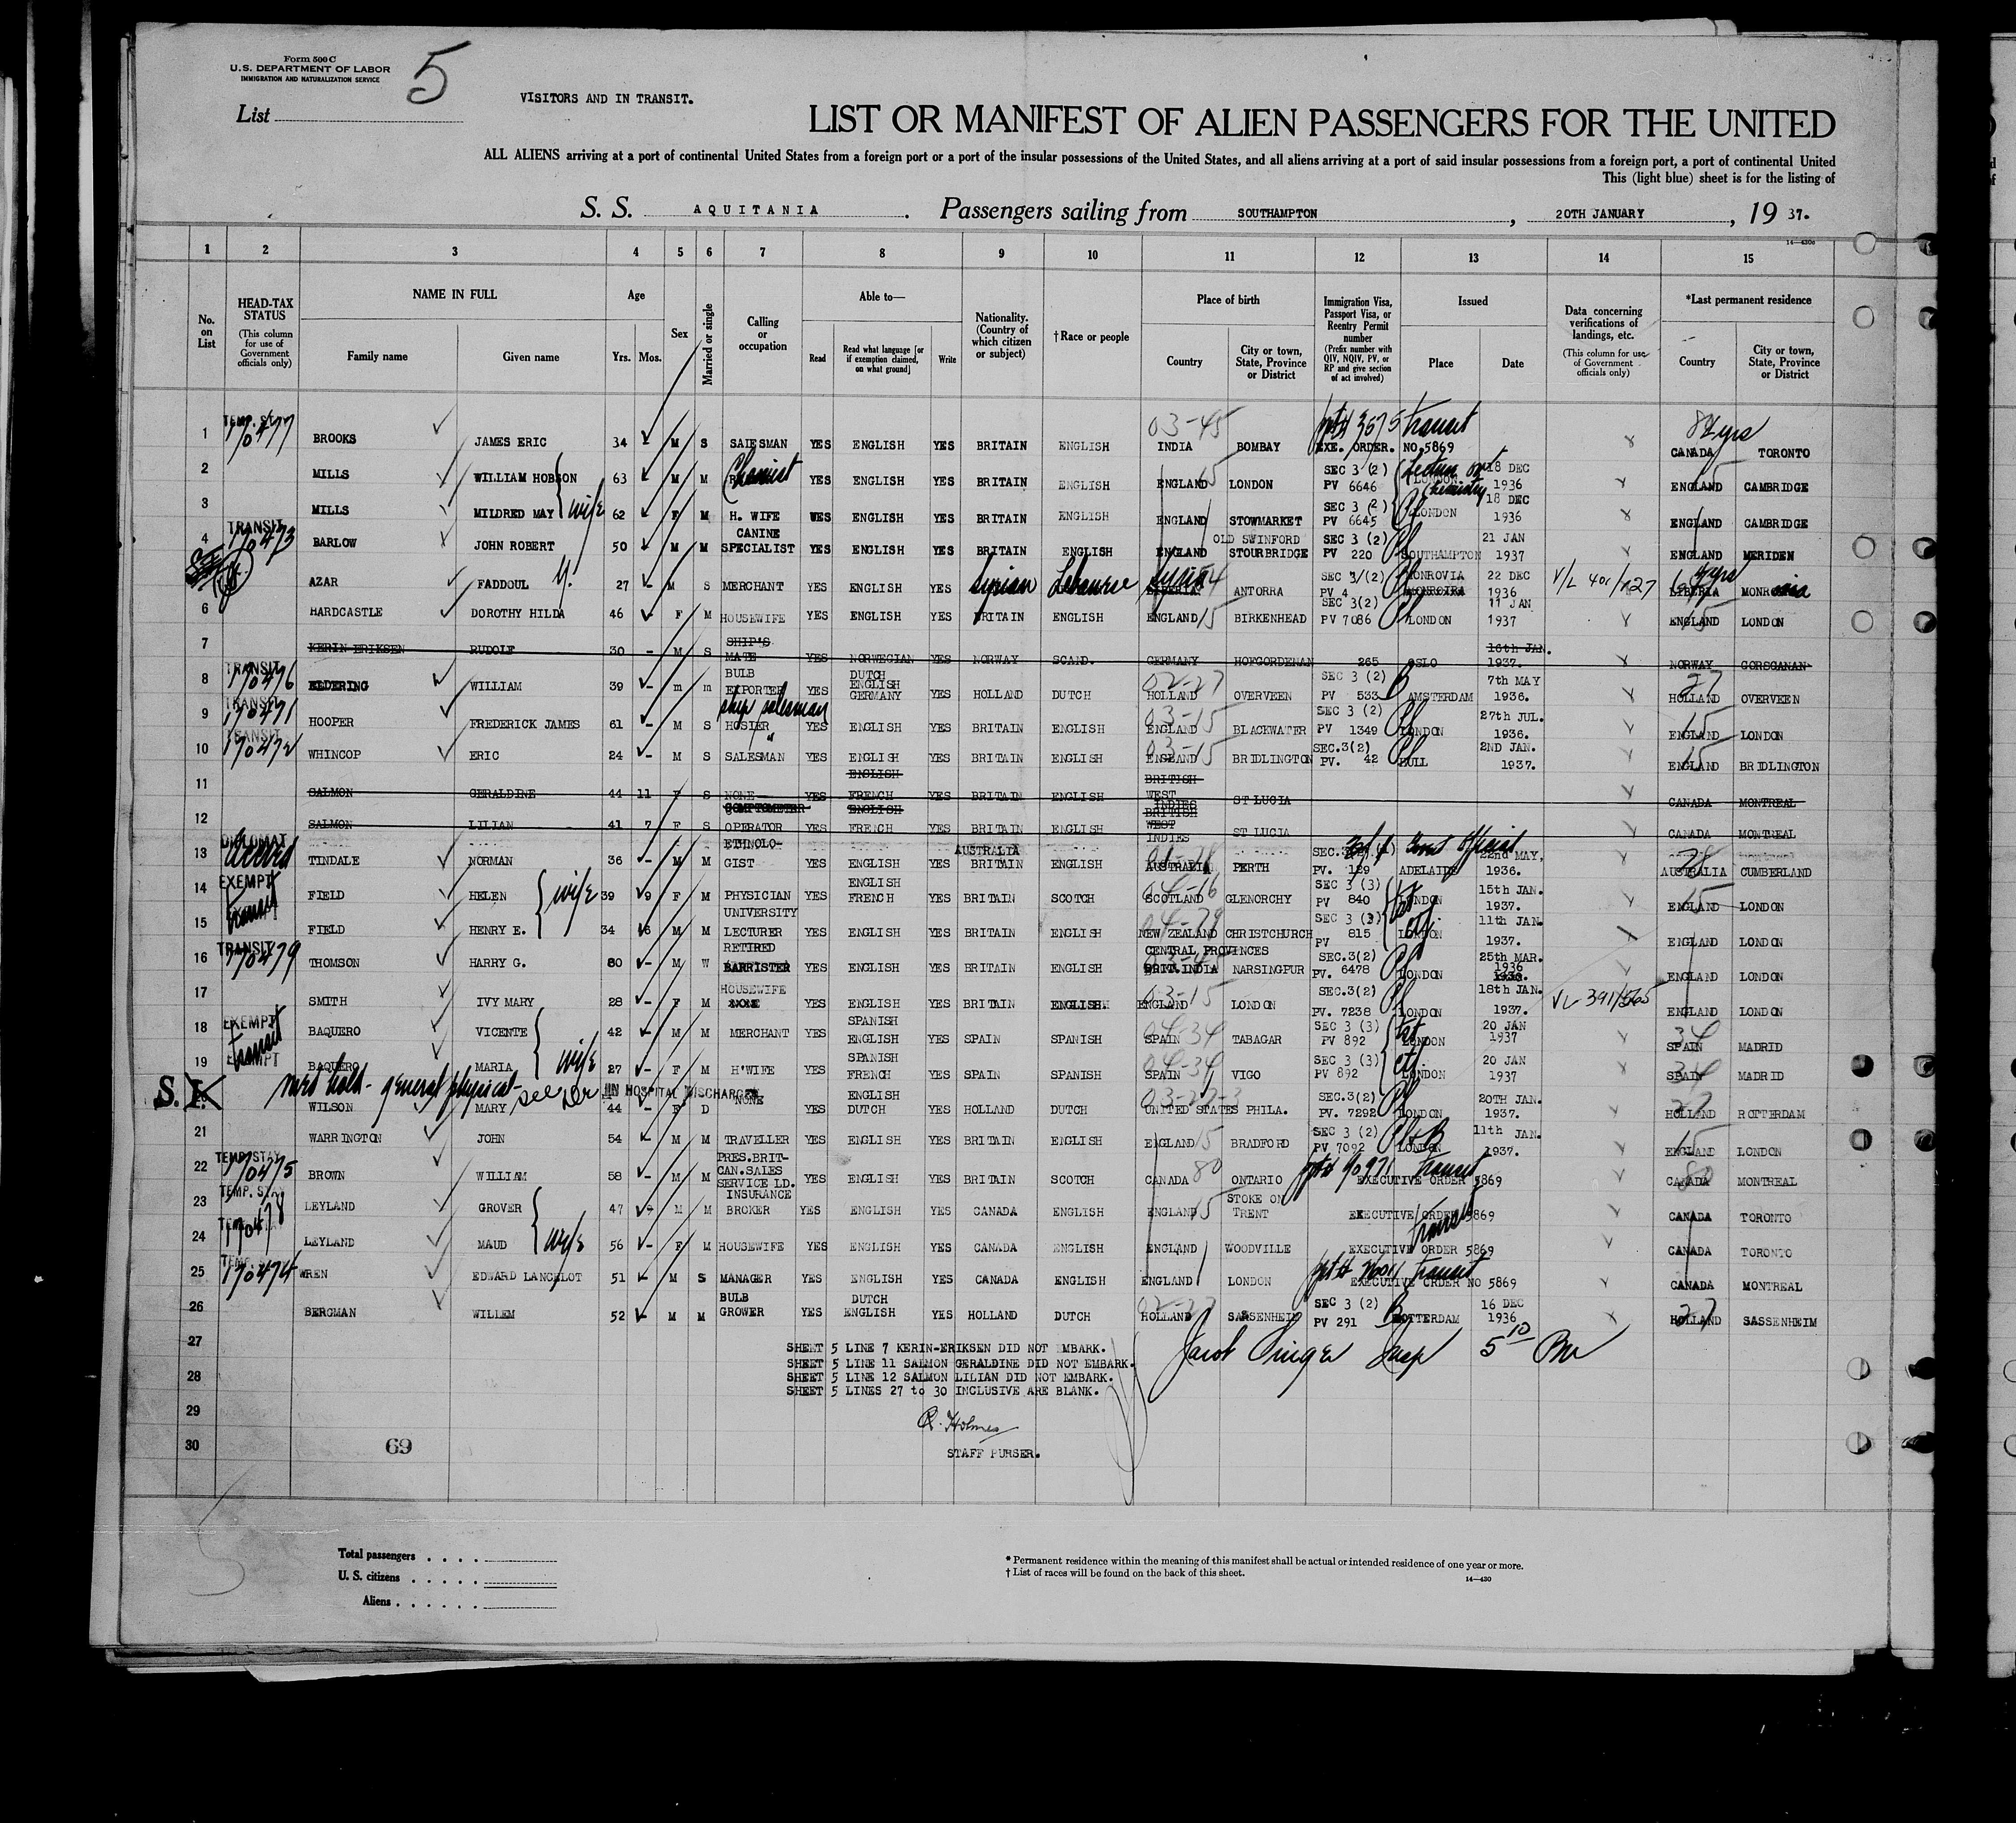 Form 500 C
U. S. DEPARTMENT OF LABOR
IMMIGRATION AND NATURALIZATION SERVICE
5
List
VISITORS AND IN TRANSIT.
LIST OR MANIFEST OF ALIEN PASSENGERS FOR THE UNITED
ALL ALIENS arriving at a port of continental United States from a foreign port or a port of the insular possessions of the United States, and all aliens arriving at a port of said insular possessions from a foreign port, a port of continental United
This (light blue) sheet is for the listing of
S. S. AQUITANIA. Passengers sailing from SOUTHAMPTON, 20TH JANUARY, 19 37.
1 2 3 4 5 6 7 8 9 10 11 12 13 14 15
No. on List
HEAD-TAX STATUS (This column for use of Government officials only)
NAME IN FULL Family name Given name
Age Yrs. Mos.
Sex
Married or single
Calling or occupation
Able to— Read Read what language [or if exemption claimed, on what ground] Write
Nationality. (Country of which citizen or subject)
†Race or people
Place of birth Country City or town, State, Province or District
Immigration Visa, Passport Visa, or Reentry Permit number (Prefix number with QIV, NQIV, PV, or RP and give section of act involved)
Issued Place Date
Data concerning verifications of landings, etc. (This column for use of Government officials only)
*Last permanent residence Country City or town, State, Province or District
1 TEMP. STAY 170477 BROOKS JAMES ERIC 34 M S SALESMAN YES ENGLISH YES BRITAIN ENGLISH 03-45 INDIA BOMBAY transit EXE. ORDER. NO.5869 CANADA TORONTO
2 MILLS WILLIAM HOBSON 63 M M Chemist YES ENGLISH YES BRITAIN ENGLISH ENGLAND 15 LONDON SEC 3 (2) PV 6646 LONDON Chemistry 18 DEC 1936 ENGLAND 15 CAMBRIDGE
3 MILLS MILDRED MAY wife 62 F M H. WIFE YES ENGLISH YES BRITAIN ENGLISH ENGLAND STOWMARKET SEC 3 (2) PV 6645 LONDON 18 DEC 1936 ENGLAND CAMBRIDGE
4 TRANSIT 170473 BARLOW JOHN ROBERT 50 M M CANINE SPECIALIST YES ENGLISH YES BRITAIN ENGLISH ENGLAND OLD SWINFORD STOURBRIDGE SEC 3 (2) PV 220 SOUTHAMPTON 21 JAN 1937 ENGLAND MERIDEN
AZAR FADDOUL Y. 27 - M S MERCHANT YES ENGLISH YES Syrian Lebanese LIBERIA ANTORRA SEC 3/(2) PV 4 MONROVIA 22 DEC 1936 LIBERIA MONROVIA
6 HARDCASTLE DOROTHY HILDA 46 F M HOUSEWIFE YES ENGLISH YES BRITAIN ENGLISH ENGLAND 15 BIRKENHEAD SEC 3(2) PV 7086 LONDON 11 JAN 1937 ENGLAND 15 LONDON
7 KERIN ERIKSEN RUDOLF 30 - M S SHIP'S MATE YES NORWEGIAN YES NORWAY SCAND. GERMANY HOFGORDEMAN 265 OSLO 16th JAN. 1937. NORWAY GORSGANAN
8 TRANSIT 170476 ELDERING WILLIAM 39 - m m BULB EXPORTER YES DUTCH ENGLISH GERMANY YES HOLLAND DUTCH 02-27 HOLLAND OVERVEEN SEC 3 (2) PV 533 AMSTERDAM 7th MAY 1936. 27 HOLLAND OVERVEEN
9 TRANSIT 170471 HOOPER FREDERICK JAMES 61 - M S salesman HOSIER YES ENGLISH YES BRITAIN ENGLISH 03-15 ENGLAND BLACKWATER SEC 3 (2) PV 1349 LONDON 27th JUL. 1936. 15 ENGLAND LONDON
10 TRANSIT 170472 WHINCOP ERIC 24 - M S " SALESMAN YES ENGLISH YES BRITAIN ENGLISH 03-15 ENGLAND BRIDLINGTON SEC.3(2) PV. 42 HULL 2ND JAN. 1937. 15 ENGLAND BRIDLINGTON
11 SALMON GERALDINE 44 11 F S NONE YES ENGLISH FRENCH YES BRITAIN ENGLISH BRITISH WEST INDIES ST LUCIA CANADA MONTREAL
12 SALMON LILIAN 41 7 F S COMPTOMETER OPERATOR YES ENGLISH FRENCH YES BRITAIN ENGLISH BRITISH WEST INDIES ST LUCIA CANADA MONTREAL
13 DIPLOMAT TINDALE NORMAN 36 - M M ETHNOLO-GIST YES ENGLISH YES AUSTRALIA BRITAIN ENGLISH AUSTRALIA PERTH PV. 189 ADELAIDE Govt Official 22nd MAY, 1936. AUSTRALIA CUMBERLAND
14 EXEMPT Transit FIELD HELEN wife 39 9 F M PHYSICIAN YES ENGLISH FRENCH YES BRITAIN SCOTCH 04-16 SCOTLAND GLENORCHY SEC 3 (3) PV 840 LONDON 15th JAN. 1937. 15 ENGLAND LONDON
15 FIELD HENRY E. 34 6 M M UNIVERSITY LECTURER YES ENGLISH YES BRITAIN ENGLISH 04-79 NEW ZEALAND CHRISTCHURCH SEC 3 (3) PV 815 LONDON 11th JAN. 1937. ENGLAND LONDON
16 TRANSIT 170479 THOMSON HARRY G. 80 - M W RETIRED BARRISTER YES ENGLISH YES BRITAIN ENGLISH CENTRAL PROVINCES BRIT.INDIA NARSINGPUR SEC.3(2) PV. 6478 LONDON 25th MAR. 1936 ENGLAND LONDON
17 SMITH IVY MARY 28 - F M HOUSEWIFE NONE YES ENGLISH YES BRITAIN ENGLISH. 03-15 ENGLAND LONDON SEC.3(2) PV. 7238 LONDON 18th JAN. 1937. VL 391/565 ENGLAND LONDON
18 EXEMPT Transit BAQUERO VICENTE 42 - M M MERCHANT YES SPANISH ENGLISH YES SPAIN SPANISH 04-34 SPAIN TABAGAR SEC 3 (3) PV 892 LONDON 20 JAN 1937 34 SPAIN MADRID
19 EXEMPT BAQUERO MARIA wife 27 - F M H'WIFE YES SPANISH FRENCH YES SPAIN SPANISH 04-34 SPAIN VIGO SEC 3 (3) PV 892 LONDON 20 JAN 1937 34 SPAIN MADRID
S. I. Med hold - general physical - see IN HOSPITAL DISCHARGED
20 WILSON MARY 44 - F D NONE YES ENGLISH DUTCH YES HOLLAND DUTCH 03-27-3 UNITED STATES PHILA. SEC.3(2) PV. 7292 LONDON 20TH JAN. 1937. 27 HOLLAND ROTTERDAM
21 WARRINGTON JOHN 54 M M TRAVELLER YES ENGLISH YES BRITAIN ENGLISH ENGLAND 15 BRADFORD SEC 3 (2) PV 7092 LONDON 11th JAN. 1937. 15 ENGLAND LONDON
22 TEMP. STAY 170475 BROWN WILLIAM 58 - M M PRES.BRIT-CAN.SALES SERVICE LD. YES ENGLISH YES BRITAIN SCOTCH CANADA 80 ONTARIO transit EXECUTIVE ORDER 5869 80 CANADA MONTREAL
23 TEMP. STAY 170478 LEYLAND GROVER 47 - M M INSURANCE BROKER YES ENGLISH YES CANADA ENGLISH ENGLAND 15 STOKE ON TRENT EXECUTIVE ORDER 5869 CANADA TORONTO
24 LEYLAND MAUD wife 56 - F M HOUSEWIFE YES ENGLISH YES CANADA ENGLISH ENGLAND WOODVILLE transit EXECUTIVE ORDER 5869 CANADA TORONTO
25 TEMP. STAY 170474 WREN EDWARD LANCELOT 51 M S MANAGER YES ENGLISH YES CANADA ENGLISH ENGLAND LONDON transit EXECUTIVE ORDER NO 5869 CANADA MONTREAL
26 BERGMAN WILLEM 52 - M M BULB GROWER YES DUTCH ENGLISH YES HOLLAND DUTCH 02-27 HOLLAND SASSENHEIM SEC 3 (2) PV 291 ROTTERDAM 16 DEC 1936 27 HOLLAND SASSENHEIM
27 SHEET 5 LINE 7 KERIN-ERIKSEN DID NOT EMBARK.
SHEET 5 LINE 11 SALMON GERALDINE DID NOT EMBARK.
28 SHEET 5 LINE 12 SALMON LILIAN DID NOT EMBARK.
SHEET 5 LINES 27 to 30 INCLUSIVE ARE BLANK.
29 Holmes
30 69 STAFF PURSER.
Total passengers
U. S. citizens
Aliens
* Permanent residence within the meaning of this manifest shall be actual or intended residence of one year or more.
† List of races will be found on the back of this sheet.
14—430